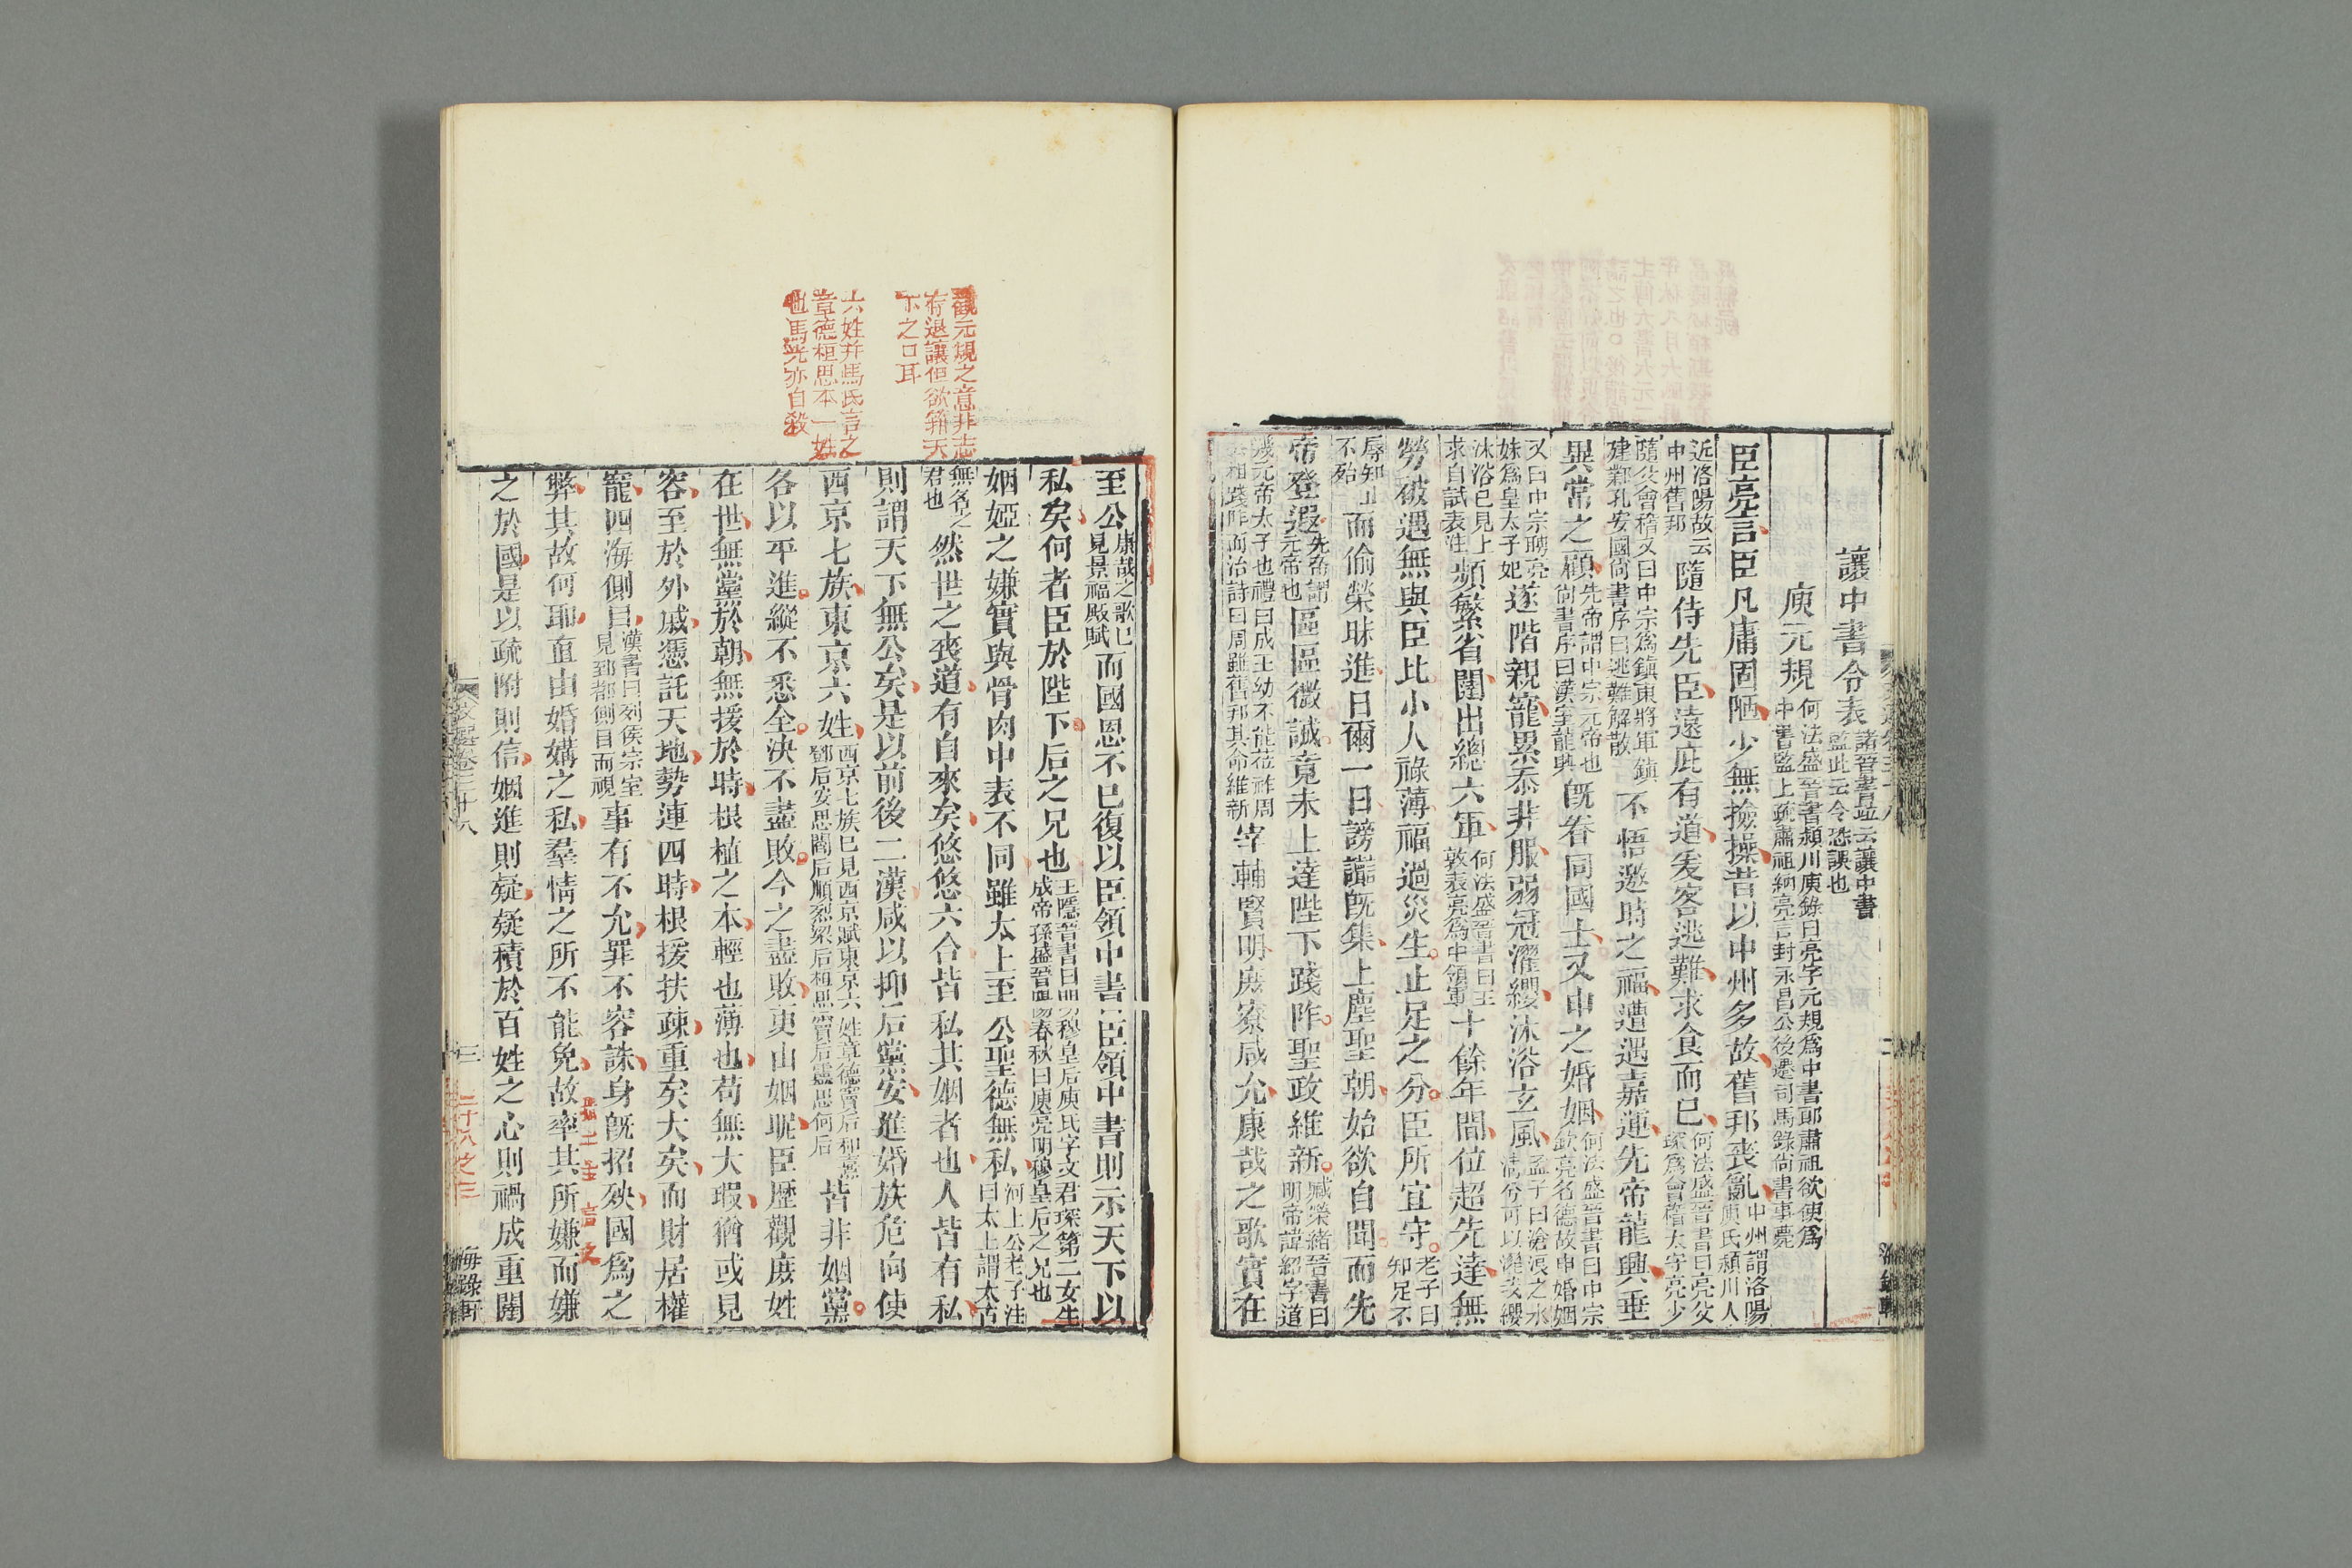 讓中書令表諸晉書竝云讓中書監此云令恐誤也
庾元規何法盛晉書潁川庾錄曰亮字元規爲中書郎肅祖欲使爲中書監上疏肅祖納亮言封永昌公後遷司馬錄尚書事薨
臣亮言臣凡庸固陋少無撿操昔以中州多故舊邦喪亂中州謂洛陽庾氏潁川人
近洛陽故云中州舊邦隨侍先臣遠庇有道爰客逃難求食而已何法盛晉書曰亮父琛爲會稽太守亮少
隨父會稽又曰中宗爲鎮東將軍鎮建鄴孔安國尚書序曰逃難解散不悟邀時之福遭遇嘉運先帝龍興垂
異常之顧先帝謂中宗元帝也尚書序曰漢室龍興旣眷同國士又申之婚姻何法盛晉書曰中宗欽亮名德故申婚姻
又曰中宗聘亮妹爲皇太子妃遂階親寵累忝非服弱冠濯纓沐浴玄風孟子曰滄浪之水淸兮可以濯我纓
沐浴已見上求自試表注頻繁省闥出總六軍何法盛晉書曰王敦表亮爲中領軍十餘年間位超先達無
勞被遇無與臣比小人祿薄福過災生止足之分臣所宜守老子曰知足不
辱知止不殆而偷榮昧進日爾一日謗讟旣集上塵聖朝始欲自聞而先
帝登遐先帝謂元帝也區區微誠竟未上達陛下踐阼聖政維新臧榮緒晉書曰明帝諱紹字道
畿元帝太子也禮曰成王幼不能莅祚周公相踐阼而治詩曰周雖舊邦其命維新宰輔賢明庶寮咸允康哉之歌實在
至公康哉之歌已見景福殿賦而國恩不已復以臣領中書臣領中書則示天下以
私矣何者臣於陛下后之兄也王隱晉書曰明穆皇后庾氏字文君琛第二女生成帝孫盛晉陽春秋曰庾亮明穆皇后之兄也
姻婭之嫌實與骨肉中表不同雖太上至公聖德無私河上公老子注曰太上謂太古
無名之君也然世之喪道有自來矣悠悠六合皆私其姻者也人皆有私
則謂天下無公矣是以前後二漢咸以抑后黨安進婚族危向使
西京七族東京六姓西京七族已見西京賦東京六姓章德竇后和熹鄧后安思閻后順烈梁后桓思竇后靈思何后皆非姻黨
各以平進縱不悉全決不盡敗今之盡敗更由姻昵臣歷觀庶姓
在世無黨於朝無援於時根植之本輕也薄也苟無大瑕猶或見
容至於外戚憑託天地勢連四時根援扶疎重矣大矣而財居權
寵四海側目漢書曰列侯宗室見郅都側目而視事有不允罪不容誅身旣招殃國爲之
弊其故何耶直由婚媾之私羣情之所不能免故率其所嫌而嫌
之於國是以疏附則信姻進則疑疑積於百姓之心則禍成重闈
觀元規之意非志
存退讓但欲箝天
下之口耳
六姓幷馬氏言之
章德桓思本一姓
也馬光亦自殺
文選卷三十八
三
二十八之三
海錄軒